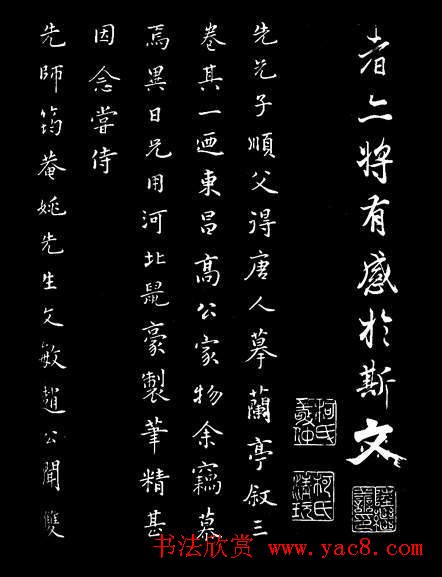 者亦將有感於斯文
柯氏敬仲
柯氏清玩
先兄子順父得唐人摹蘭亭叙三
卷其一迺東昌高公家物余竊慕
焉異日兄用河北鼠豪製筆精甚
因念嘗侍
先師筠菴姚先生文敏趙公聞雙
书法欣赏 www.yac8.com